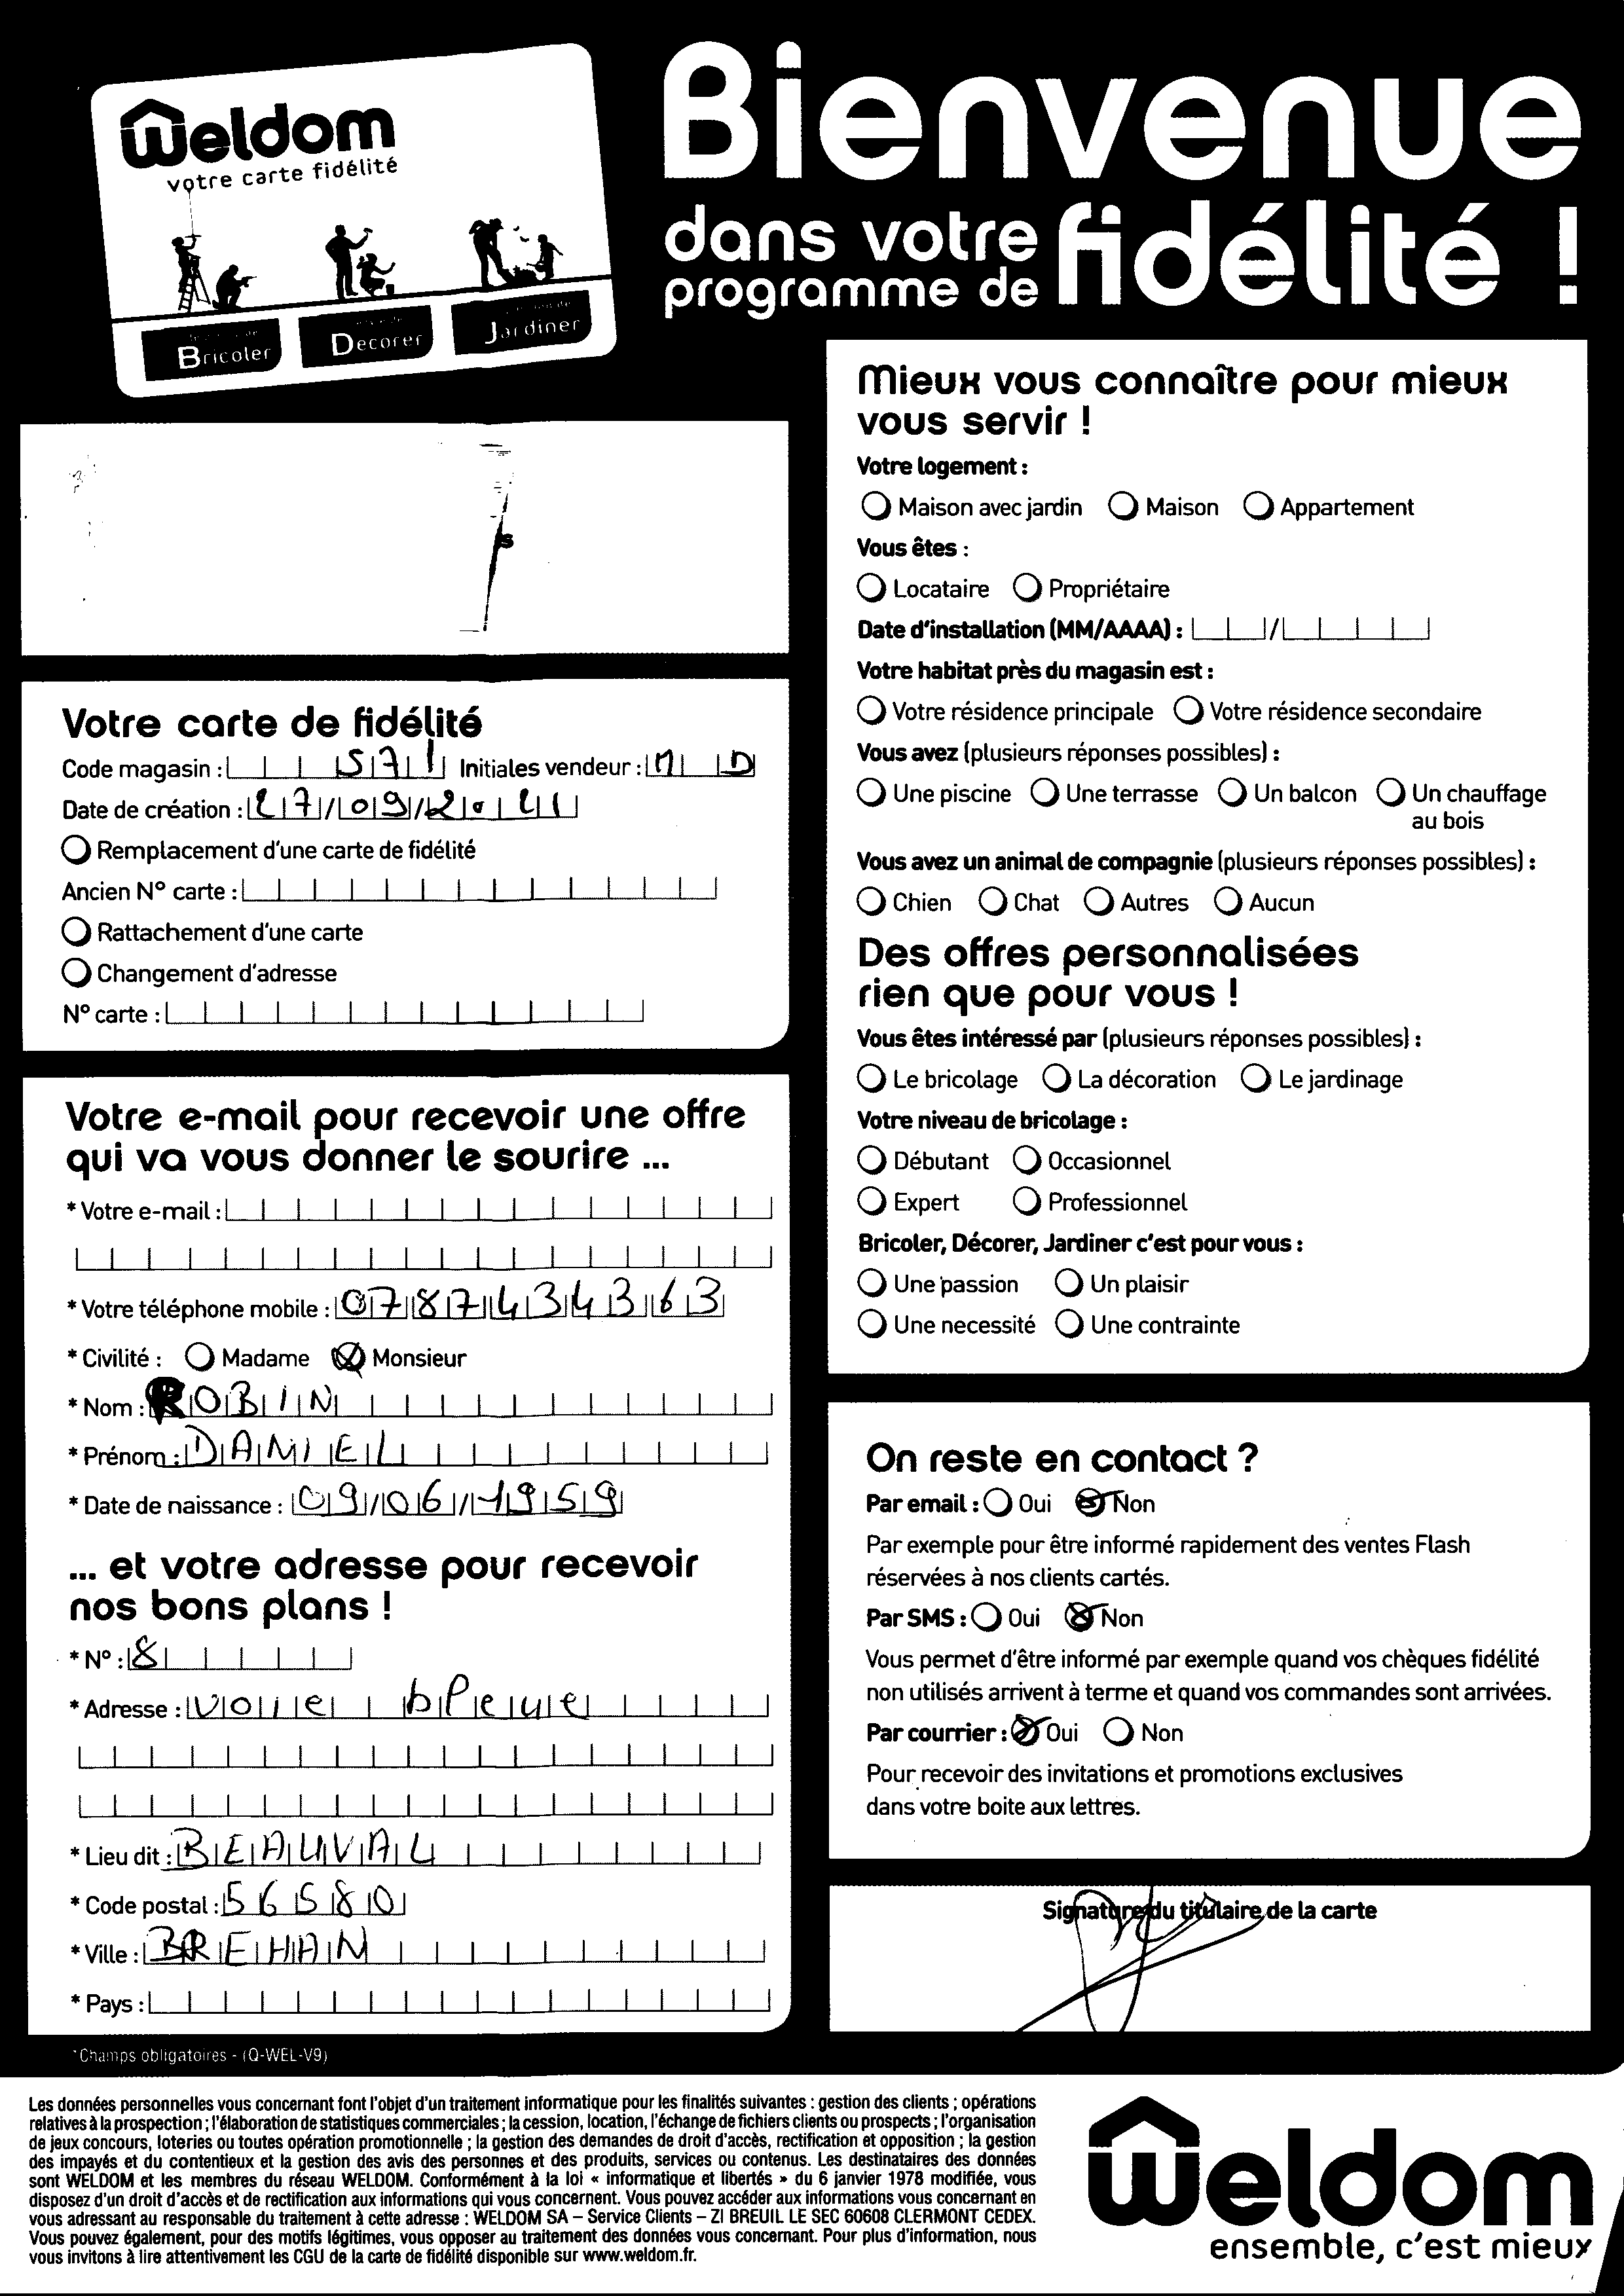 Weldom
votre carte fidélité
Bricoler
Décorer
Jardiner
Bienvenue
dans votre
programme de
fidélité !
Votre carte de fidélité
Code magasin : 571 Initiales vendeur : M D
Date de création :
Remplacement d'une carte de fidélité
Ancien N° carte :
Rattachement d'une carte
Changement d'adresse
N° carte :
Votre e-mail pour recevoir une offre
qui va vous donner le sourire ...
* Votre e-mail :
* Votre téléphone mobile : 0787434363
* Civilité : Madame Monsieur
* Nom : ROBIN
* Prénom : DANIEL
* Date de naissance : 09/06/1959
... et votre adresse pour recevoir
nos bons plans !
* N° : 8
* Adresse : voie bleue
* Lieu dit : BEAUVAL
* Code postal : 56580
* Ville : BREHAN
* Pays :
*Champs obligatoires - (Q-WEL-V9)
Mieux vous connaître pour mieux
vous servir !
Votre logement :
Maison avec jardin Maison Appartement
Vous êtes :
Locataire Propriétaire
Date d'installation (MM/AAAA) : /
Votre habitat près du magasin est :
Votre résidence principale Votre résidence secondaire
Vous avez (plusieurs réponses possibles) :
Une piscine Une terrasse Un balcon Un chauffage
au bois
Vous avez un animal de compagnie (plusieurs réponses possibles) :
Chien Chat Autres Aucun
Des offres personnalisées
rien que pour vous !
Vous êtes intéressé par (plusieurs réponses possibles) :
Le bricolage La décoration Le jardinage
Votre niveau de bricolage :
Débutant Occasionnel
Expert Professionnel
Bricoler, Décorer, Jardiner c'est pour vous :
Une passion Un plaisir
Une necessité Une contrainte
On reste en contact ?
Par email : Oui Non
Par exemple pour être informé rapidement des ventes Flash
réservées à nos clients cartés.
Par SMS : Oui Non
Vous permet d'être informé par exemple quand vos chèques fidélité
non utilisés arrivent à terme et quand vos commandes sont arrivées.
Par courrier : Oui Non
Pour recevoir des invitations et promotions exclusives
dans votre boite aux lettres.
Signature du titulaire de la carte
Les données personnelles vous concernant font l'objet d'un traitement informatique pour les finalités suivantes : gestion des clients ; opérations
relatives à la prospection ; l'élaboration de statistiques commerciales ; la cession, location, l'échange de fichiers clients ou prospects ; l'organisation
de jeux concours, loteries ou toutes opération promotionnelle ; la gestion des demandes de droit d'accès, rectification et opposition ; la gestion
des impayés et du contentieux et la gestion des avis des personnes et des produits, services ou contenus. Les destinataires des données
sont WELDOM et les membres du réseau WELDOM. Conformément à la loi « informatique et libertés » du 6 janvier 1978 modifiée, vous
disposez d'un droit d'accès et de rectification aux informations qui vous concernent. Vous pouvez accéder aux informations vous concernant en
vous adressant au responsable du traitement à cette adresse : WELDOM SA – Service Clients – ZI BREUIL LE SEC 60608 CLERMONT CEDEX.
Vous pouvez également, pour des motifs légitimes, vous opposer au traitement des données vous concernant. Pour plus d'information, nous
vous invitons à lire attentivement les CGU de la carte de fidélité disponible sur www.weldom.fr.
Weldom
ensemble, c'est mieux